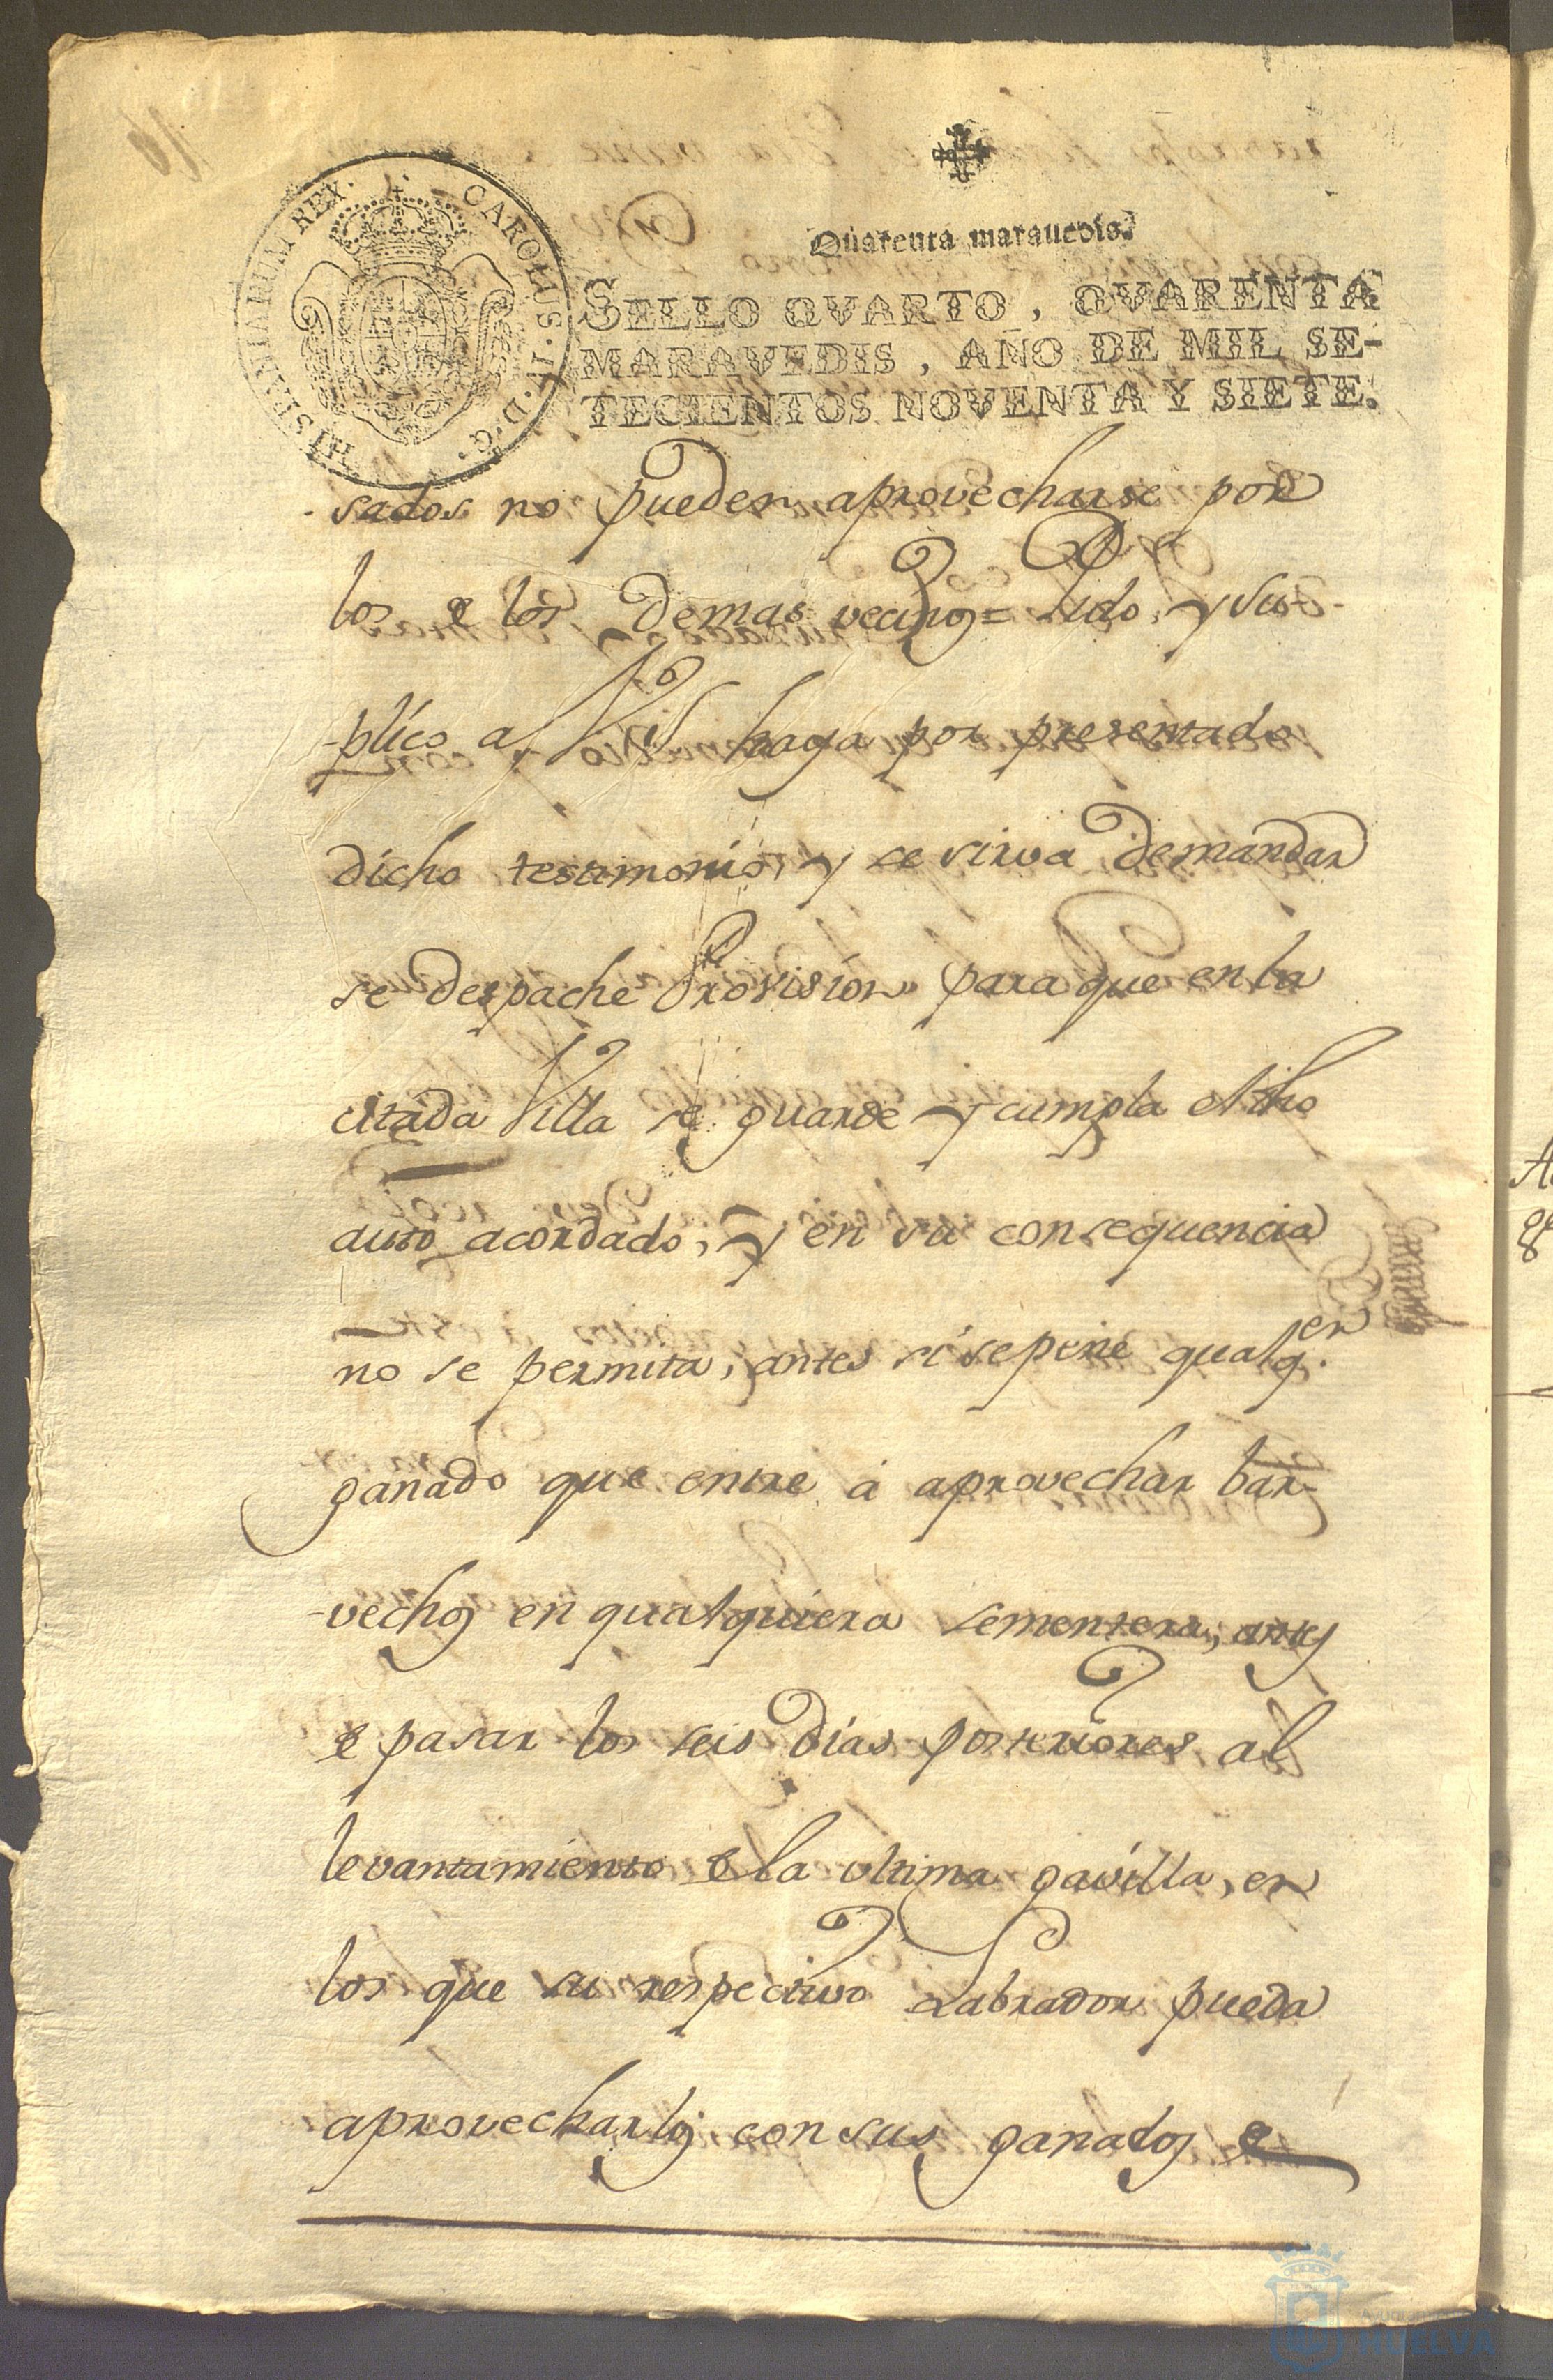 HISPANIARUM REX. CAROLUS IV. D. G.
Quarenta maravedis.
SELLO QVARTO, QVARENTA
MARAVEDIS, AÑO DE MIL SE-
TECIENTOS NOVENTA Y SIETE.
sados no pueden aprovecharse por
los de los demas vecinos = Pido, y su-
-plico a V.S. haga por presentado
dicho testimonio, y se sirva demandar
se despache Provision para que en la
citada Villa se guarde y cumpla el dho
auto acordado, y en su consequencia
no se permita, antes si se pene qualq.er
ganado que entre á aprovechar bar-
-vechos en qualquiera sementera, antes
de pasar los seis dias posteriores al
levantamiento de la ultima gavilla, en
los que su respectivo Labrador pueda
aprovecharlos con sus ganados de
HUELVA